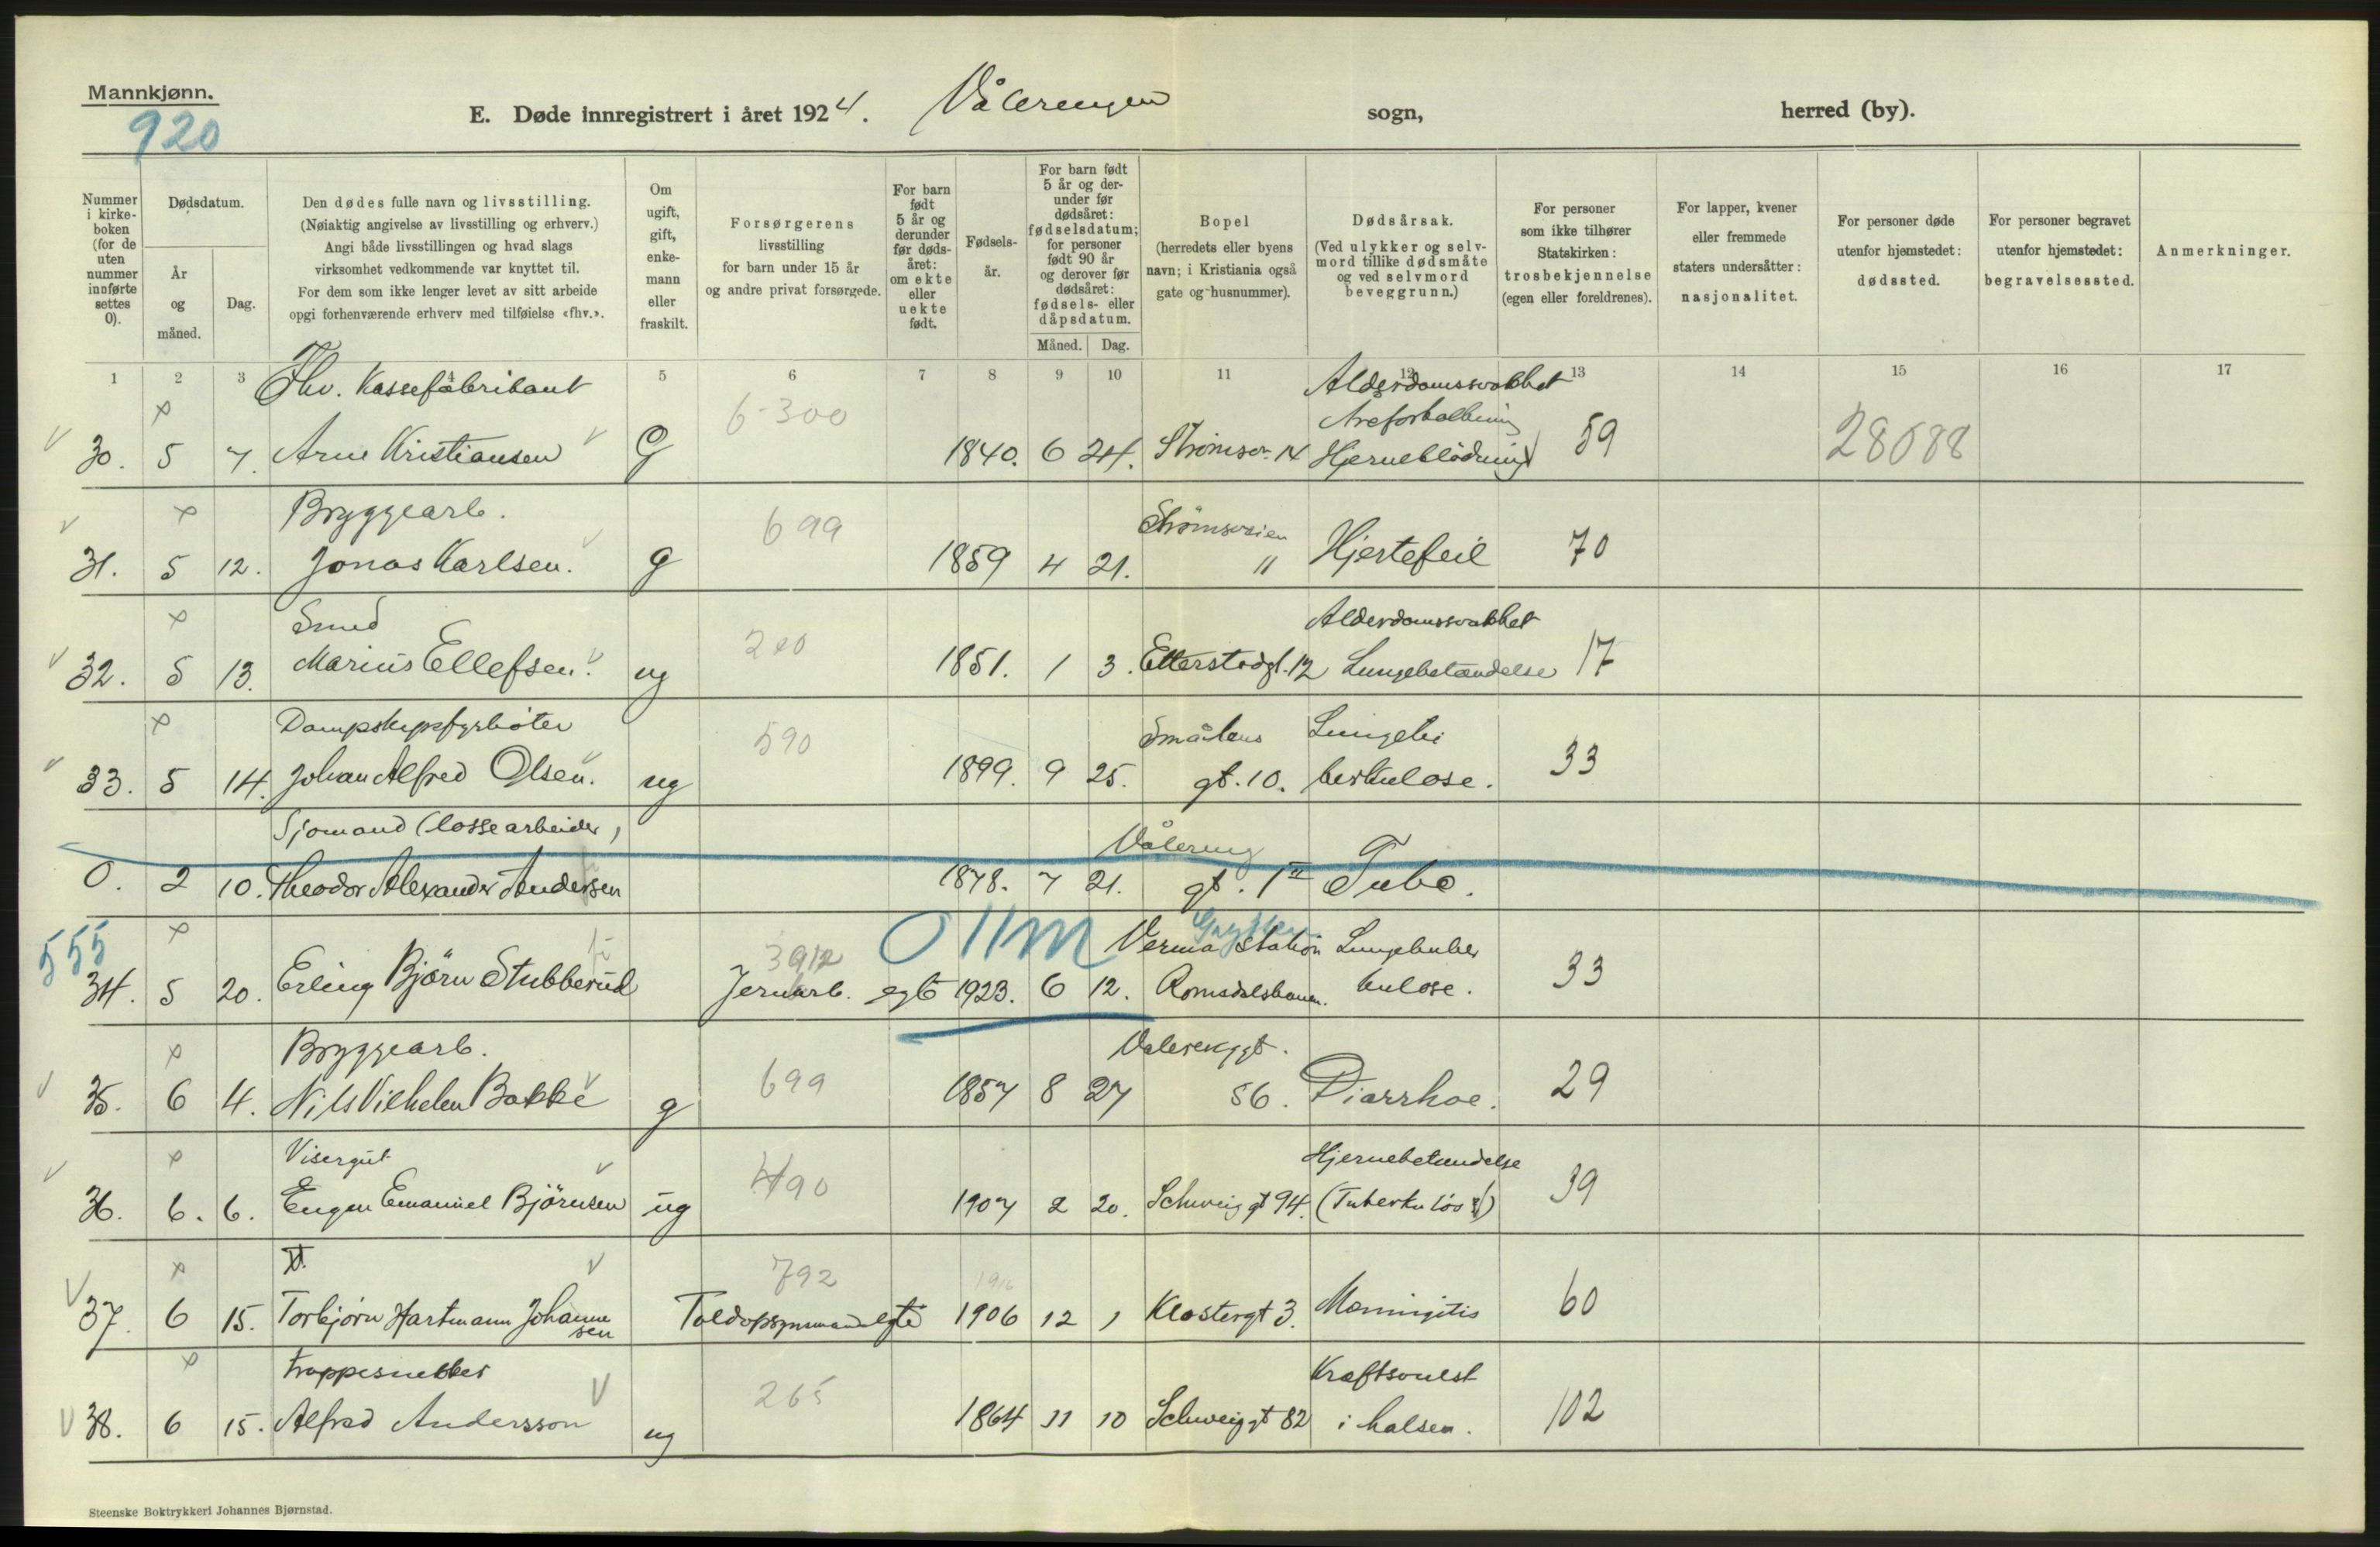 Mannkjønn.
920
E. Døde innregistrert i året 1924. Vålerengen sogn, herred (by).
Nummer i kirkeboken (for de uten nummer innførte settes 0).
Dødsdatum.
År og måned.
Dag.
Den dødes fulle navn og livsstilling.
(Nøiaktig angivelse av livsstilling og erhverv.)
Angi både livsstillingen og hvad slags
virksomhet vedkommende var knyttet til.
For dem som ikke lenger levet av sitt arbeide
opgi forhenværende erhverv med tilføielse «fhv.».
Om ugift, gift, enkemann eller fraskilt.
Forsørgerens
livsstilling
for barn under 15 år
og andre privat forsørgede.
For barn født 5 år og derunder før dødsåret: om ekte eller uekte født.
Fødselsår.
For barn født 5 år og derunder før dødsåret: fødselsdatum; for personer født 90 år og derover før dødsåret: fødsels- eller dåpsdatum.
Måned. Dag.
Bopel
(herredets eller byens
navn; i Kristiania også
gate og husnummer).
Dødsårsak.
(Ved ulykker og selvmord tillike dødsmåte og ved selvmord beveggrunn.)
For personer
som ikke tilhører
Statskirken:
trosbekjennelse
(egen eller foreldrenes).
For lapper, kvener
eller fremmede
staters undersåtter:
nasjonalitet.
For personer døde
utenfor hjemstedet:
dødssted.
For personer begravet
utenfor hjemstedet:
begravelsessted.
Anmerkninger.
1 2 3 4 5 6 7 8 9 10 11 12 13 14 15 16 17
Fhv. Kassefabrikant Alderdomssvakhet
6-300 Areforkalkning
30. 5 7. Arne Kristiansen G 1840. 6 24. Strømsv. 14 Hjerneblødning 59 28088
Bryggearb. 699 Strømsveien
31. 5 12. Jonas Karlsen. g 1859 4 21. " Hjertefeil 70
Smed 200 Alderdomssvakhet
32. 5 13. Marius Ellefsen. ug 1851. 1 3. Etterstadgt. 12 Lungebetændelse 17
Dampskipsfyrbøter 590 Smålens Lungetu
33. 5 14. Johan Alfred Olsen. ug 1899. 9 25. gt. 10. berkulose. 33
Sjømand (lossearbeider) Vålereng
0. 2 10. Theodor Alexander Andersen 1878. 7 21. gt. 1 II Tube.
555 3912 0 11 m Grytten Verma station Lungetuber
34. 5 20. Erling Bjørn Stubberud Jernarb. egte 1923. 6 12. Romsdalsbanen. kulose. 33
Bryggearb. 699 Valerenggt.
35. 6 4. Nils Vilhelm Bakke g 1857 8 27 56. Diarrhoe. 29
Visergut 490 Hjernebetændelse
36. 6. 6. Eugen Emanuel Bjørnsen ug 1907 2 20. Schweig gt 94. (Tuberkuløs) 39
792 1916
37. 6 15. Torbjørn Hartmann Johannesen Toldopsynsmand egte 1906 12 1 Klostergt 3. Menningitis 60
Trappesnekker 265 Kræftsvulst
38. 6 15. Alfred Andersson ug 1864 11 10 Schweig gt 82 i halsen. 102
Steenske Boktrykkeri Johannes Bjørnstad.